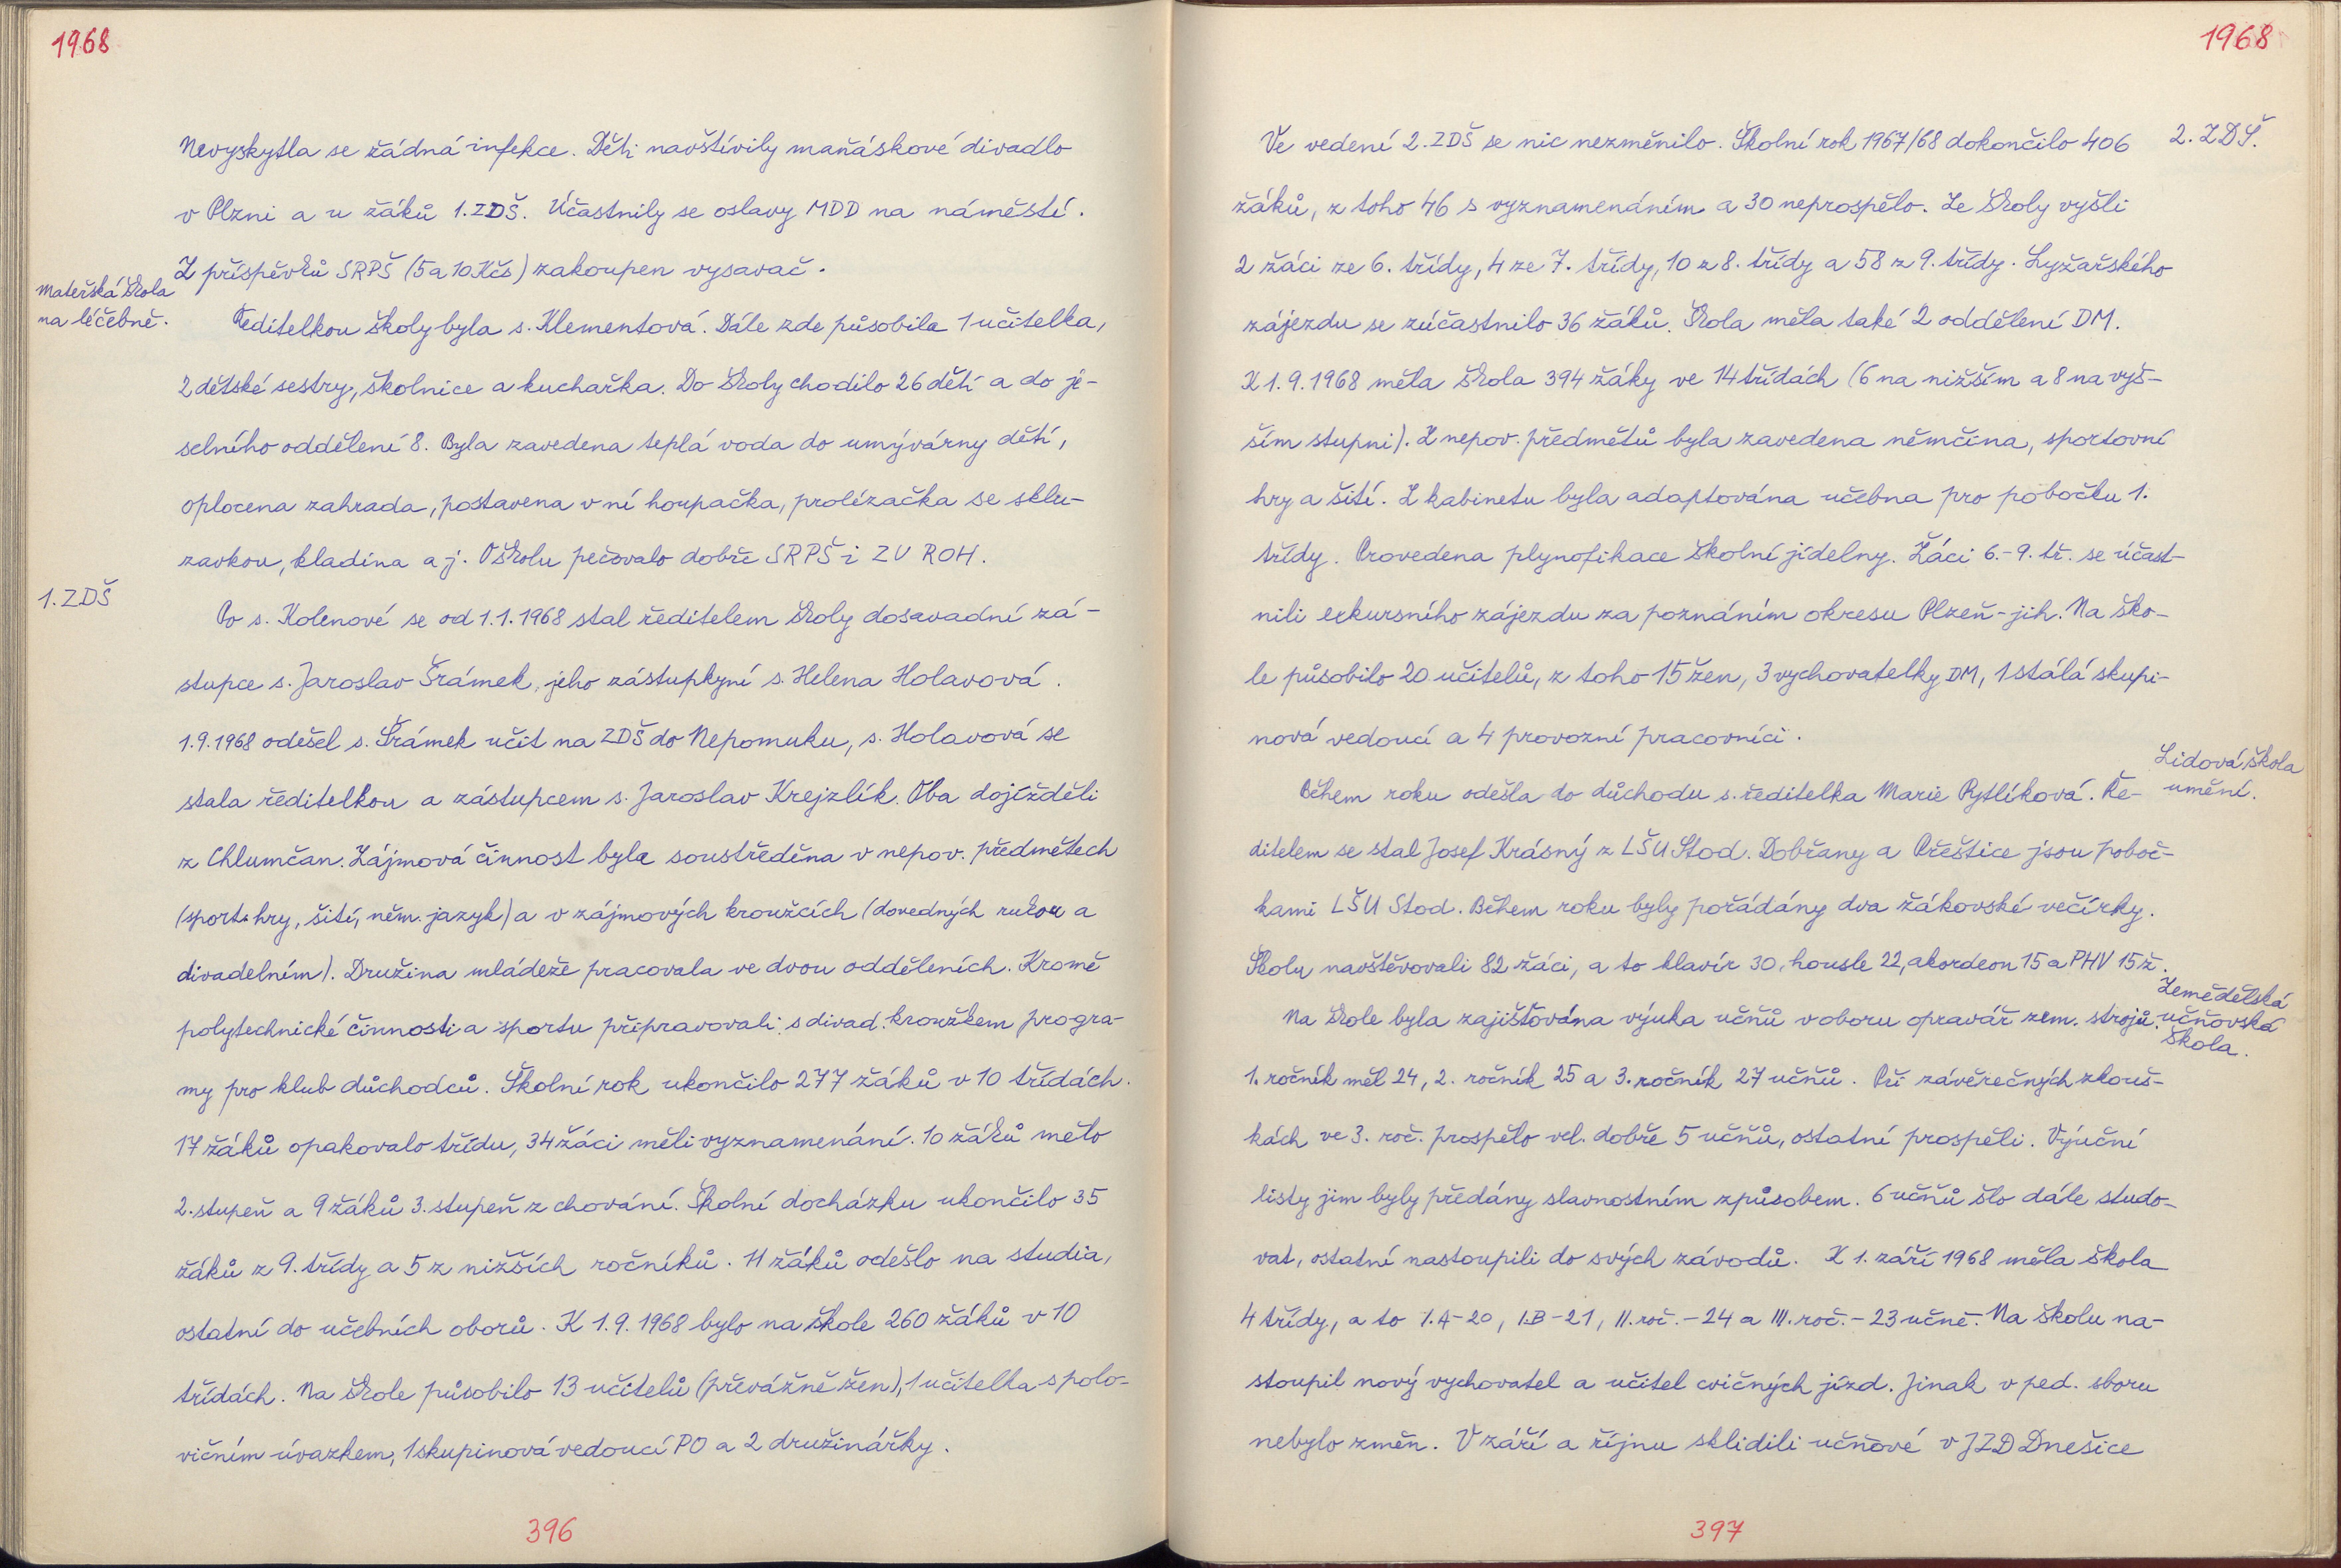 1968
Nevyskytla se žádná infekce. Děti navštívily maňáskové divadlo
v Plzni a u žáků 1. ZDŠ. Účastnily se oslavy MDD na náměstí.
Z příspěvků SRPŠ (5 a 10 Kčs) zakoupen vysavač.
Mateřská škola
na léčebně.
Ředitelkou školy byla s. Klementová. Dále zde působila 1 učitelka,
2 dětské sestry, školnice a kuchařka. Do školy chodilo 26 dětí a do je-
selního oddělení 8. Byla zavedena teplá voda do umývárny dětí,
oplocena zahrada, postavena v ní houpačka, prolézačka se sklu-
zavkou, kladina a j. O školu pečovalo dobře SRPŠ i ZV ROH.
1. ZDŠ
Po s. Kolenové se od 1.1.1968 stal ředitelem školy dosavadní zá-
stupce s. Jaroslav Šrámek, jeho zástupkyní s. Helena Holavová.
1.9.1968 odešel s. Šrámek učit na ZDŠ do Nepomuku, s. Holavová se
stala ředitelkou a zástupcem s. Jaroslav Krejzlík. Oba dojížděli
z Chlumčan. Zájmová činnost byla soustředěna v nepov. předmětech
(sport. hry, šití, něm. jazyk) a v zájmových kroužcích (dovedných rukou a
divadelním). Družina mládeže pracovala ve dvou odděleních. Kromě
polytechnické činnosti a sportu připravovali s divad. kroužkem progra-
my pro klub důchodců. Školní rok ukončilo 277 žáků v 10 třídách.
17 žáků opakovalo třídu, 34 žáci měli vyznamenání. 10 žáků mělo
2. stupeň a 9 žáků 3. stupeň z chování. Školní docházku ukončilo 35
žáků z 9. třídy a 5 z nižších ročníků. 11 žáků odešlo na studia,
ostatní do učebních oborů. K 1.9.1968 bylo na škole 260 žáků v 10
třídách. Na škole působilo 13 učitelů (převážně žen), 1 učitelka s polo-
vičním úvazkem, 1 skupinová vedoucí PO a 2 družinářky.
396
1968
2. ZDŠ.
Ve vedení 2. ZDŠ se nic nezměnilo. Školní rok 1967/68 dokončilo 406
žáků, z toho 46 s vyznamenáním a 30 neprospělo. Ze školy vyšli
2 žáci ze 6. třídy, 4 ze 7. třídy, 10 z 8. třídy a 58 z 9. třídy. Lyžařského
zájezdu se zúčastnilo 36 žáků. Škola měla také 2 oddělení DM.
K 1.9.1968 měla škola 394 žáky ve 14 třídách (6 na nižším a 8 na vyš-
ším stupni). Z nepov. předmětů byla zavedena němčina, sportovní
hry a šití. Z kabinetu byla adaptována učebna pro pobočku 1.
třídy. Provedena plynofikace školní jídelny. Žáci 6.-9. tř. se účast-
nili exkursního zájezdu za poznáním okresu Plzeň-jih. Na ško-
le působilo 20 učitelů, z toho 15 žen, 3 vychovatelky DM, 1 stálá skupi-
nová vedoucí a 4 provozní pracovníci.
Lidová škola
umění.
Během roku odešla do důchodu s. ředitelka Marie Pytlíková. Ře-
ditelem se stal Josef Krásný z LŠU Stod. Dobřany a Přeštice jsou poboč-
kami LŠU Stod. Během roku byly pořádány dva žákovské večírky.
Školu navštěvovali 82 žáci, a to klavír 30, housle 22, akordeon 15 a PHV 15 ž.
Zemědělská
učňovská
škola.
Na škole byla zajišťována výuka učňů v oboru opravář zem. strojů.
1. ročník měl 24, 2. ročník 25 a 3. ročník 27 učňů. Při závěrečných zkouš-
kách ve 3. roč. prospělo vel. dobře 5 učňů, ostatní prospěli. Výuční
listy jim byly předány slavnostním způsobem. 6 učňů šlo dále studo-
vat, ostatní nastoupili do svých závodů. K 1. září 1968 měla škola
4 třídy, a to I.A-20, I.B-21, II. roč.-24 a III. roč.-23 učně. Na školu na-
stoupil nový vychovatel a učitel cvičných jízd. Jinak v ped. sboru
nebylo změn. V září a říjnu sklidili učňové v JZD Dnešice
397